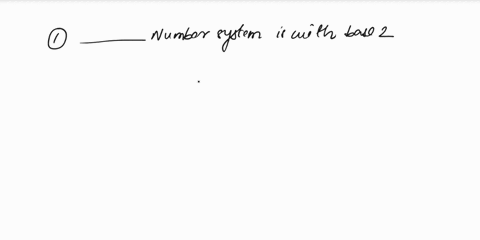 ① ______ Number system is with base 2